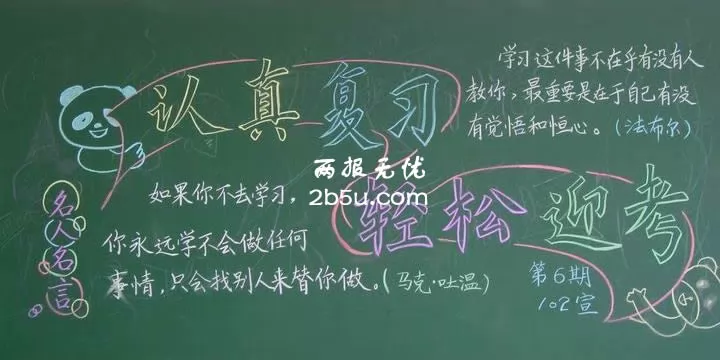 认真复习
学习这件事不在乎有没有人
教你，最重要是在于自己有没
有觉悟和恒心。(法布尔)
两报无忧
2b5u.com
轻松迎考
名人名言
如果你不去学习，
你永远学不会做任何
事情，只会找别人来替你做。(马克·吐温)
第6期
102宣